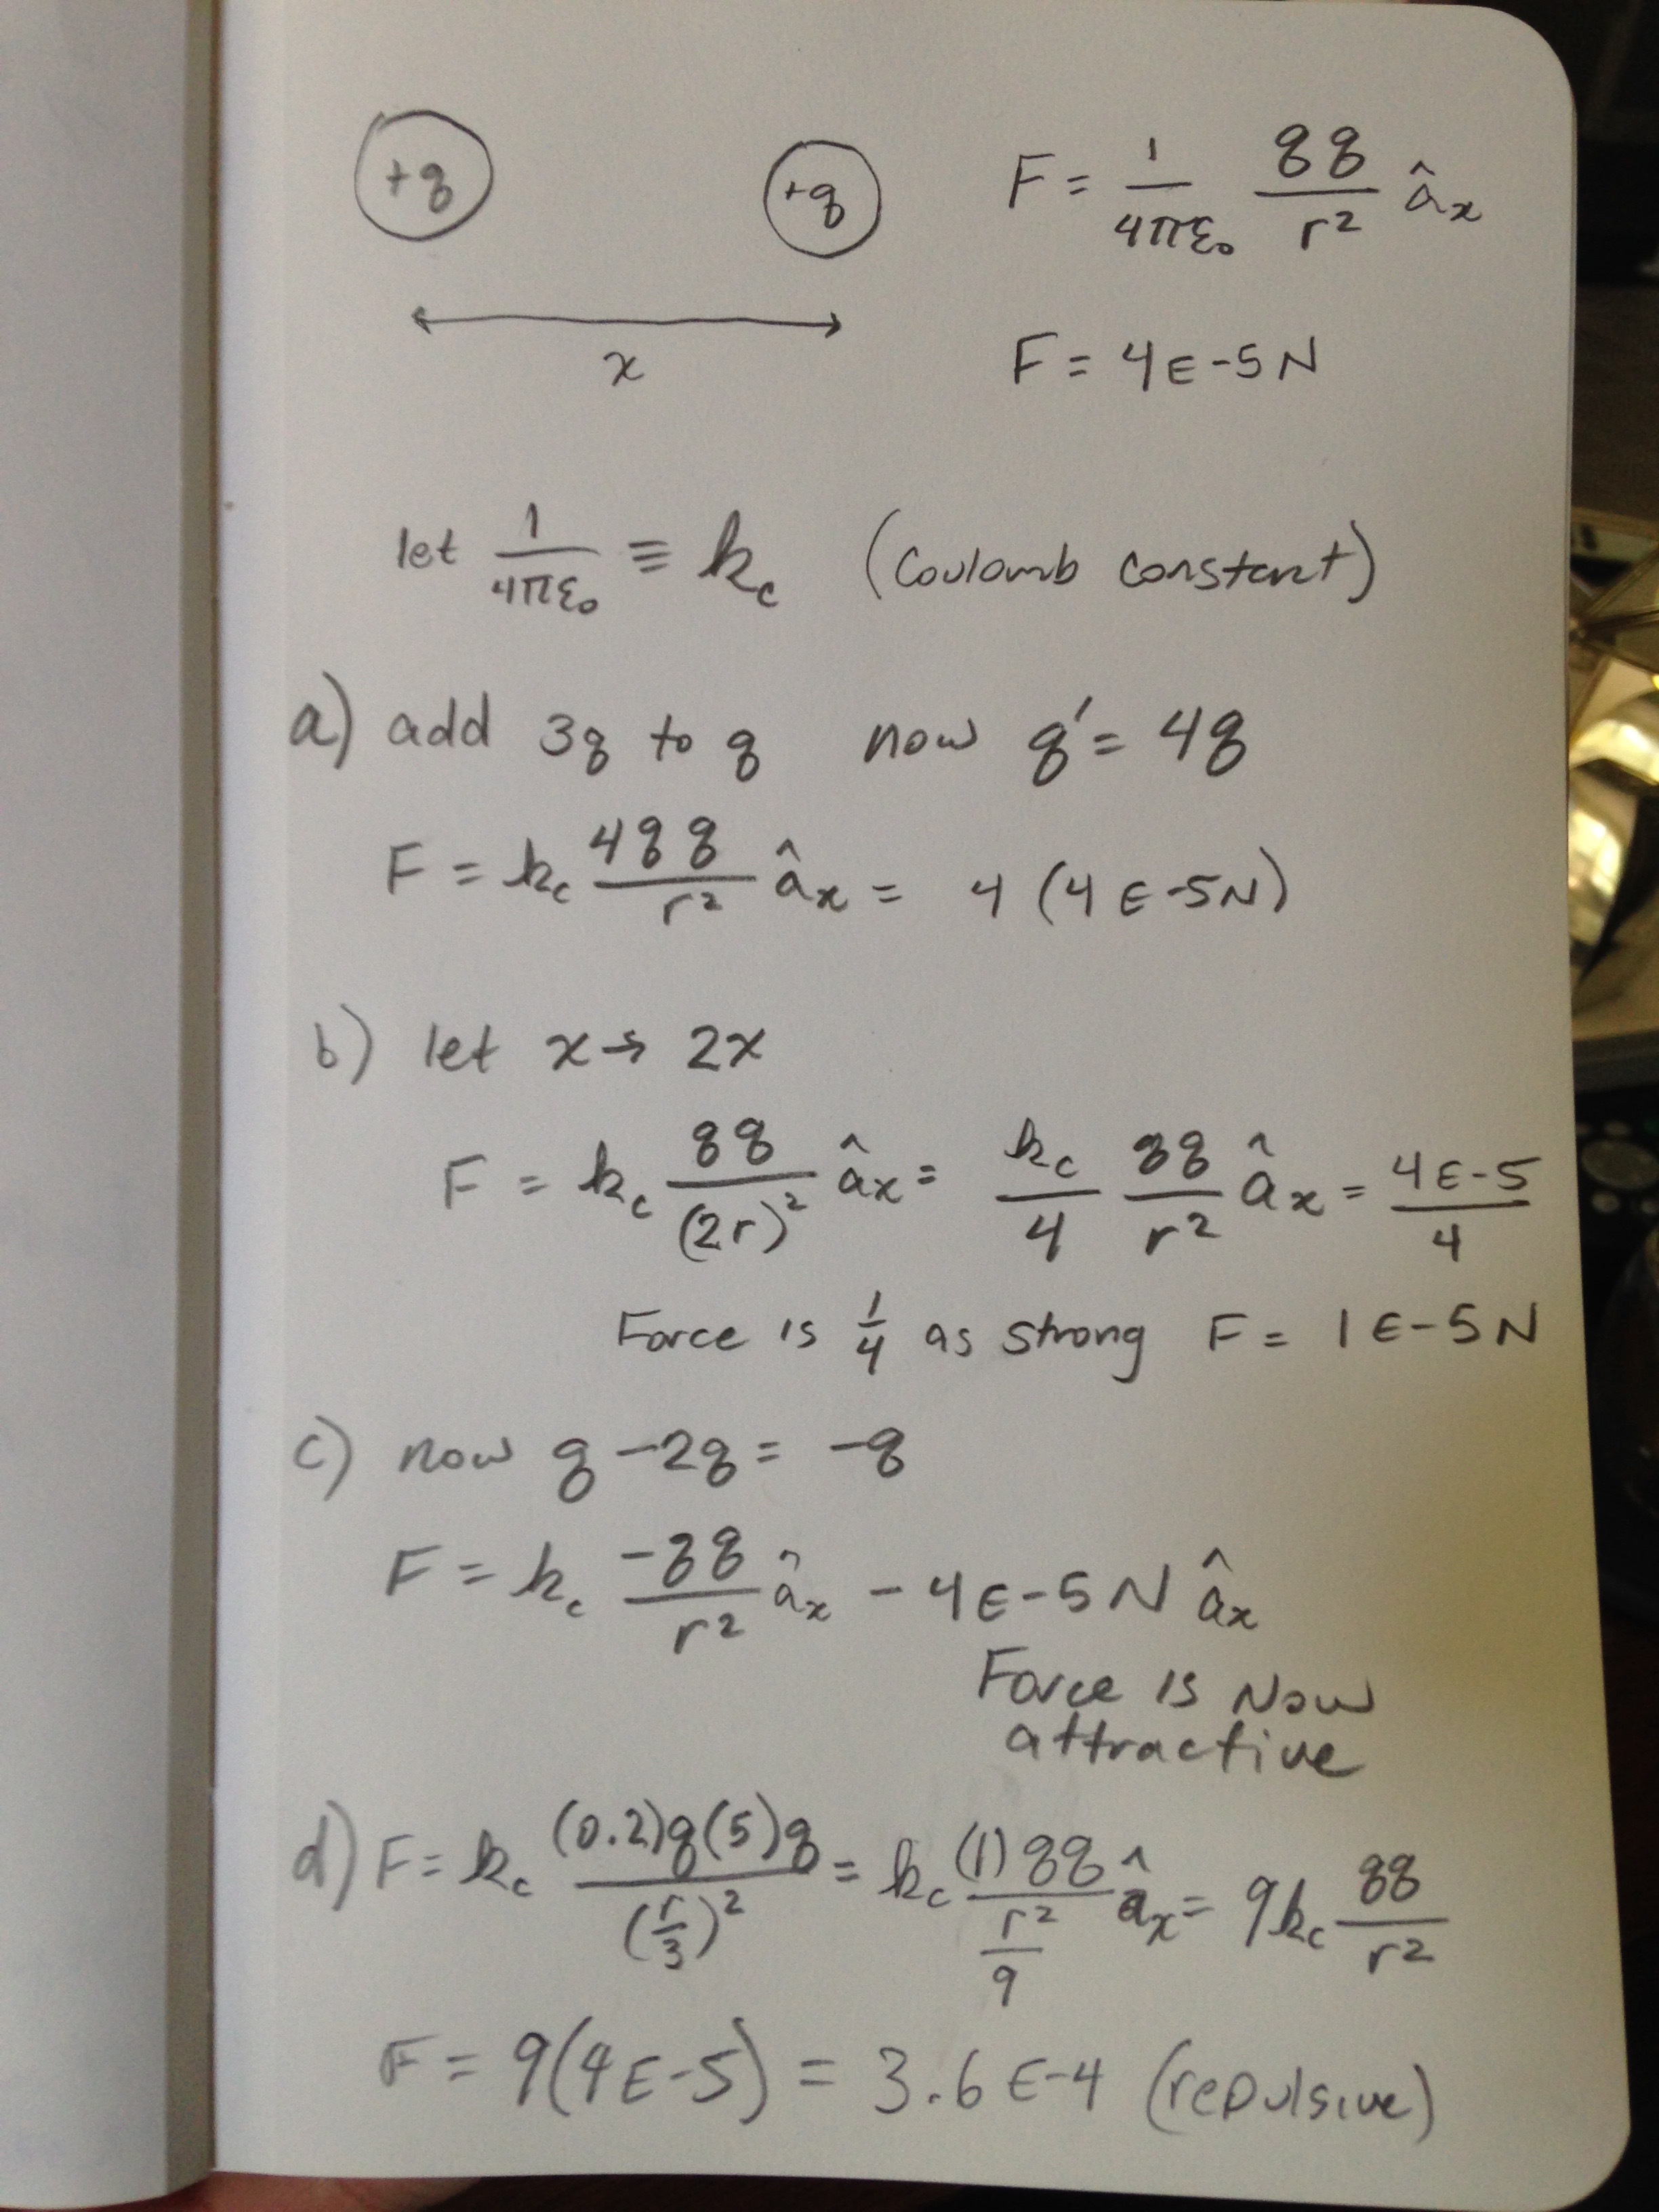 +q +q F = 1/4πε₀ qq/r² âₓ
x F = 4E-5N
let 1/4πε₀ ≡ k_c (Coulomb constant)
a) add 3q to q now q' = 4q
F = k_c 4qq/r² âₓ = 4(4E-5N)
b) let x → 2x
F = k_c qq/(2r)² âₓ = k_c/4 qq/r² âₓ = 4E-5/4
Force is 1/4 as strong F = 1E-5N
c) now q - 2q = -q
F = k_c -qq/r² âₓ - 4E-5N âₓ
Force is Now
attractive
d) F = k_c (0.2)q(5)q/(r/3)² = k_c (1)qq/(r²/9) âₓ = 9k_c qq/r²
F = 9(4E-5) = 3.6E-4 (repulsive)